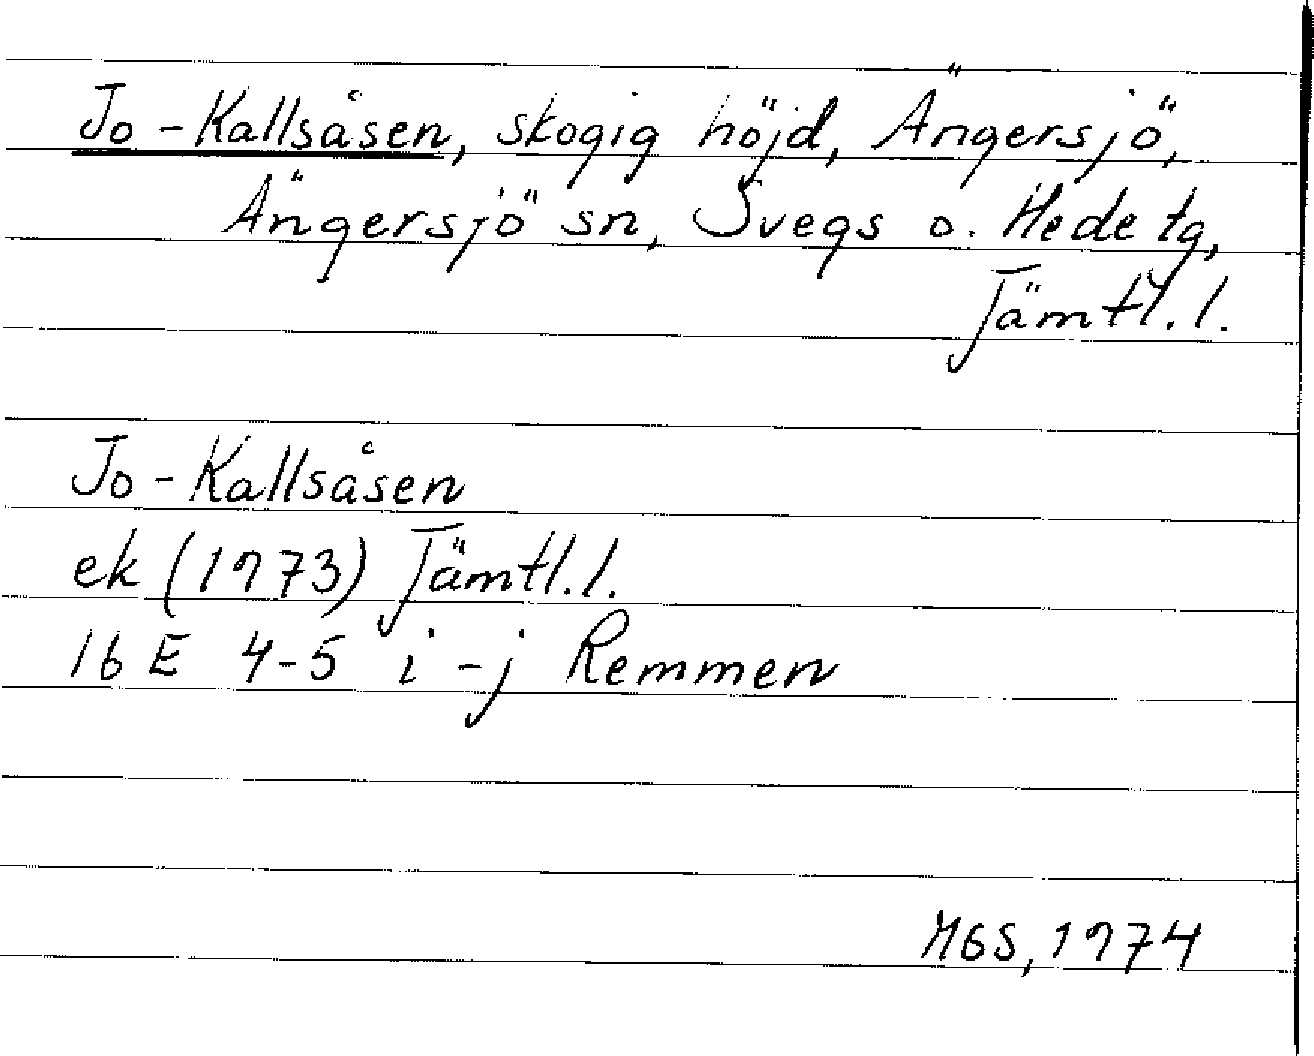 Jo-Kallsåsen, skogig höjd, Ängersjö,
Ängersjö sn, Svegs o. Hede tg,
Jämtl. l.
Jo-Kallsåsen
ek (1973) Jämtl. l.
16 E 4-5 i-j Remmen
MGS, 1974